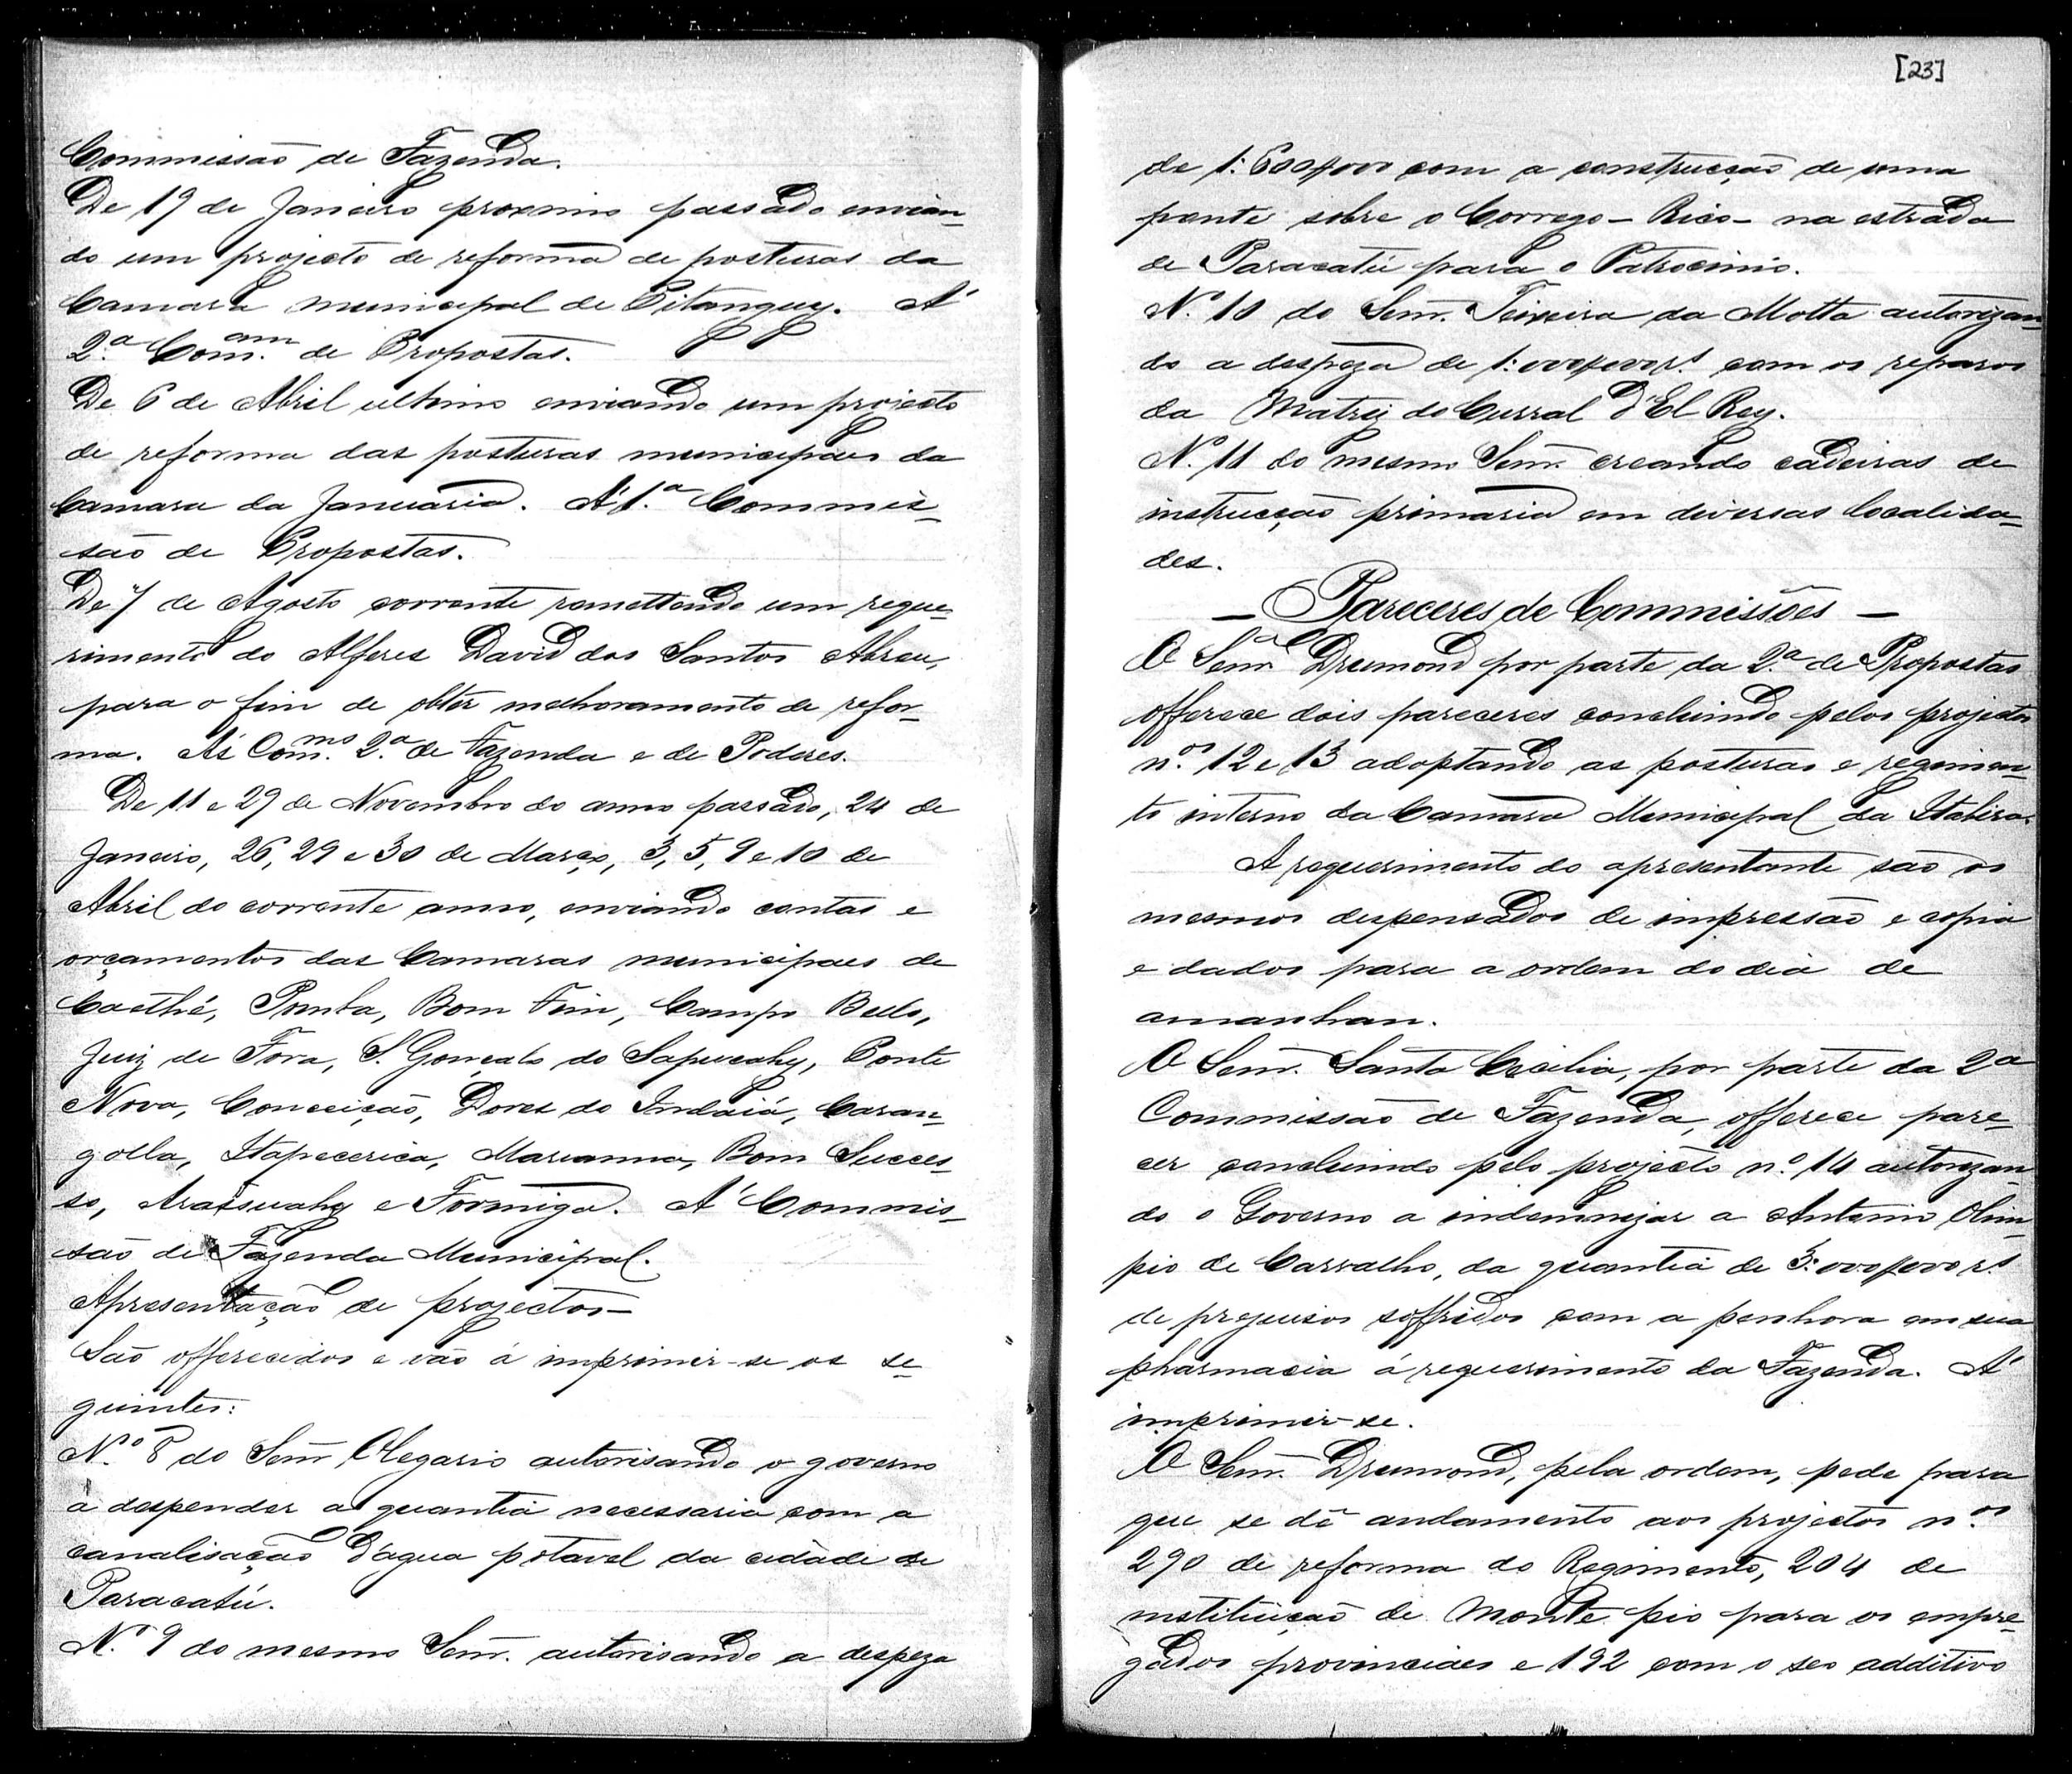 Commissão de Fazenda.
De 19 de Janeiro proximo passado envian-
do um projecto de reforma de posturas da
Camara municipal de Pitanguy. A'
2.ª Com.am de Propostas.
De 6 de Abril ultimo enviando um projecto
de reforma das posturas municipaes da
Camara da Januaria. A' 1.ª Commis-
são de Propostas.
De 7 de Agosto corrente remettendo um reque-
rimento do Alferes David dos Santos Abreu,
para o fim de obter melhoramento de refor-
ma. Ás Com.ms 2.ª de Fazenda e de Poderes.
De 11 e 29 de Novembro do anno passado, 24 de
Janeiro, 26, 29 e 30 de Março, 3, 5, 9 e 10 de
Abril do corrente anno, enviando contas e
orçamentos das Camaras municipaes de
Caethé, Pomba, Bom Fim, Campo Bello,
Juiz de Fora, S. Gonçalo do Sapucahy, Ponte
Nova, Conceição, Dores do Indaiá, Caran-
golla, Itapecerica, Marianna, Bom Succes-
so, Arassuahy e Formiga. A' Commis-
são de Fazenda Municipal.
Apresentação de projectos—
São offerecidos e vão á imprimir-se os se-
guintes:
N.º 8 do Senr Olegario autorisando o governo
a despender a quantia necessaria com a
canalisação d'agua potavel da cidade de
Paracatú.
N.º 9 do mesmo Senr. autorisando a despeza
[23]
de 1:600$000 com a construcção de uma
ponte sobre o Corrego - Rico - na estrada
de Paracatú para o Patrocinio.
N.º 10 do Senr. Teixeira da Motta autorizan-
do a despeza de 1:000$000 rs. com os reparos
da Matriz do Curral d'El Rey.
N.º 11 do mesmo Senr. creando cadeiras de
instrucção primaria em diversas localida-
des.
— Pareceres de Commissões —
O Senr Drumond por parte da 2.ª de Propostas
offerece dois pareceres concluindo pelos projectos
n.os 12 e 13 adoptando as posturas e regimen-
to interno da Camara Municipal da Itabira.
A requerimento do apresentante são os
mesmos dispensados de impressão e copia
e dados para a ordem do dia de
amanhan.
O Senr. Santa Cecilia, por parte da 2ª
Commissão de Fazenda, offerece pare-
cer concluindo pelo projecto n.º 14 autorizan-
do o Governo a indemnizar a Antonio Olim-
pio de Carvalho, da quantia de 3:000$000 rs.
de prejuisos soffridos com a penhora em sua
pharmacia á requerimento da Fazenda. A'
imprimir-se.
O Senr. Drumond, pela ordem, pede para
que se dê andamento aos projectos n.os
290 de reforma do Regimento, 204 de
instituição de Monte pio para os empre-
gados provinciaes e 192 com o seo additivo